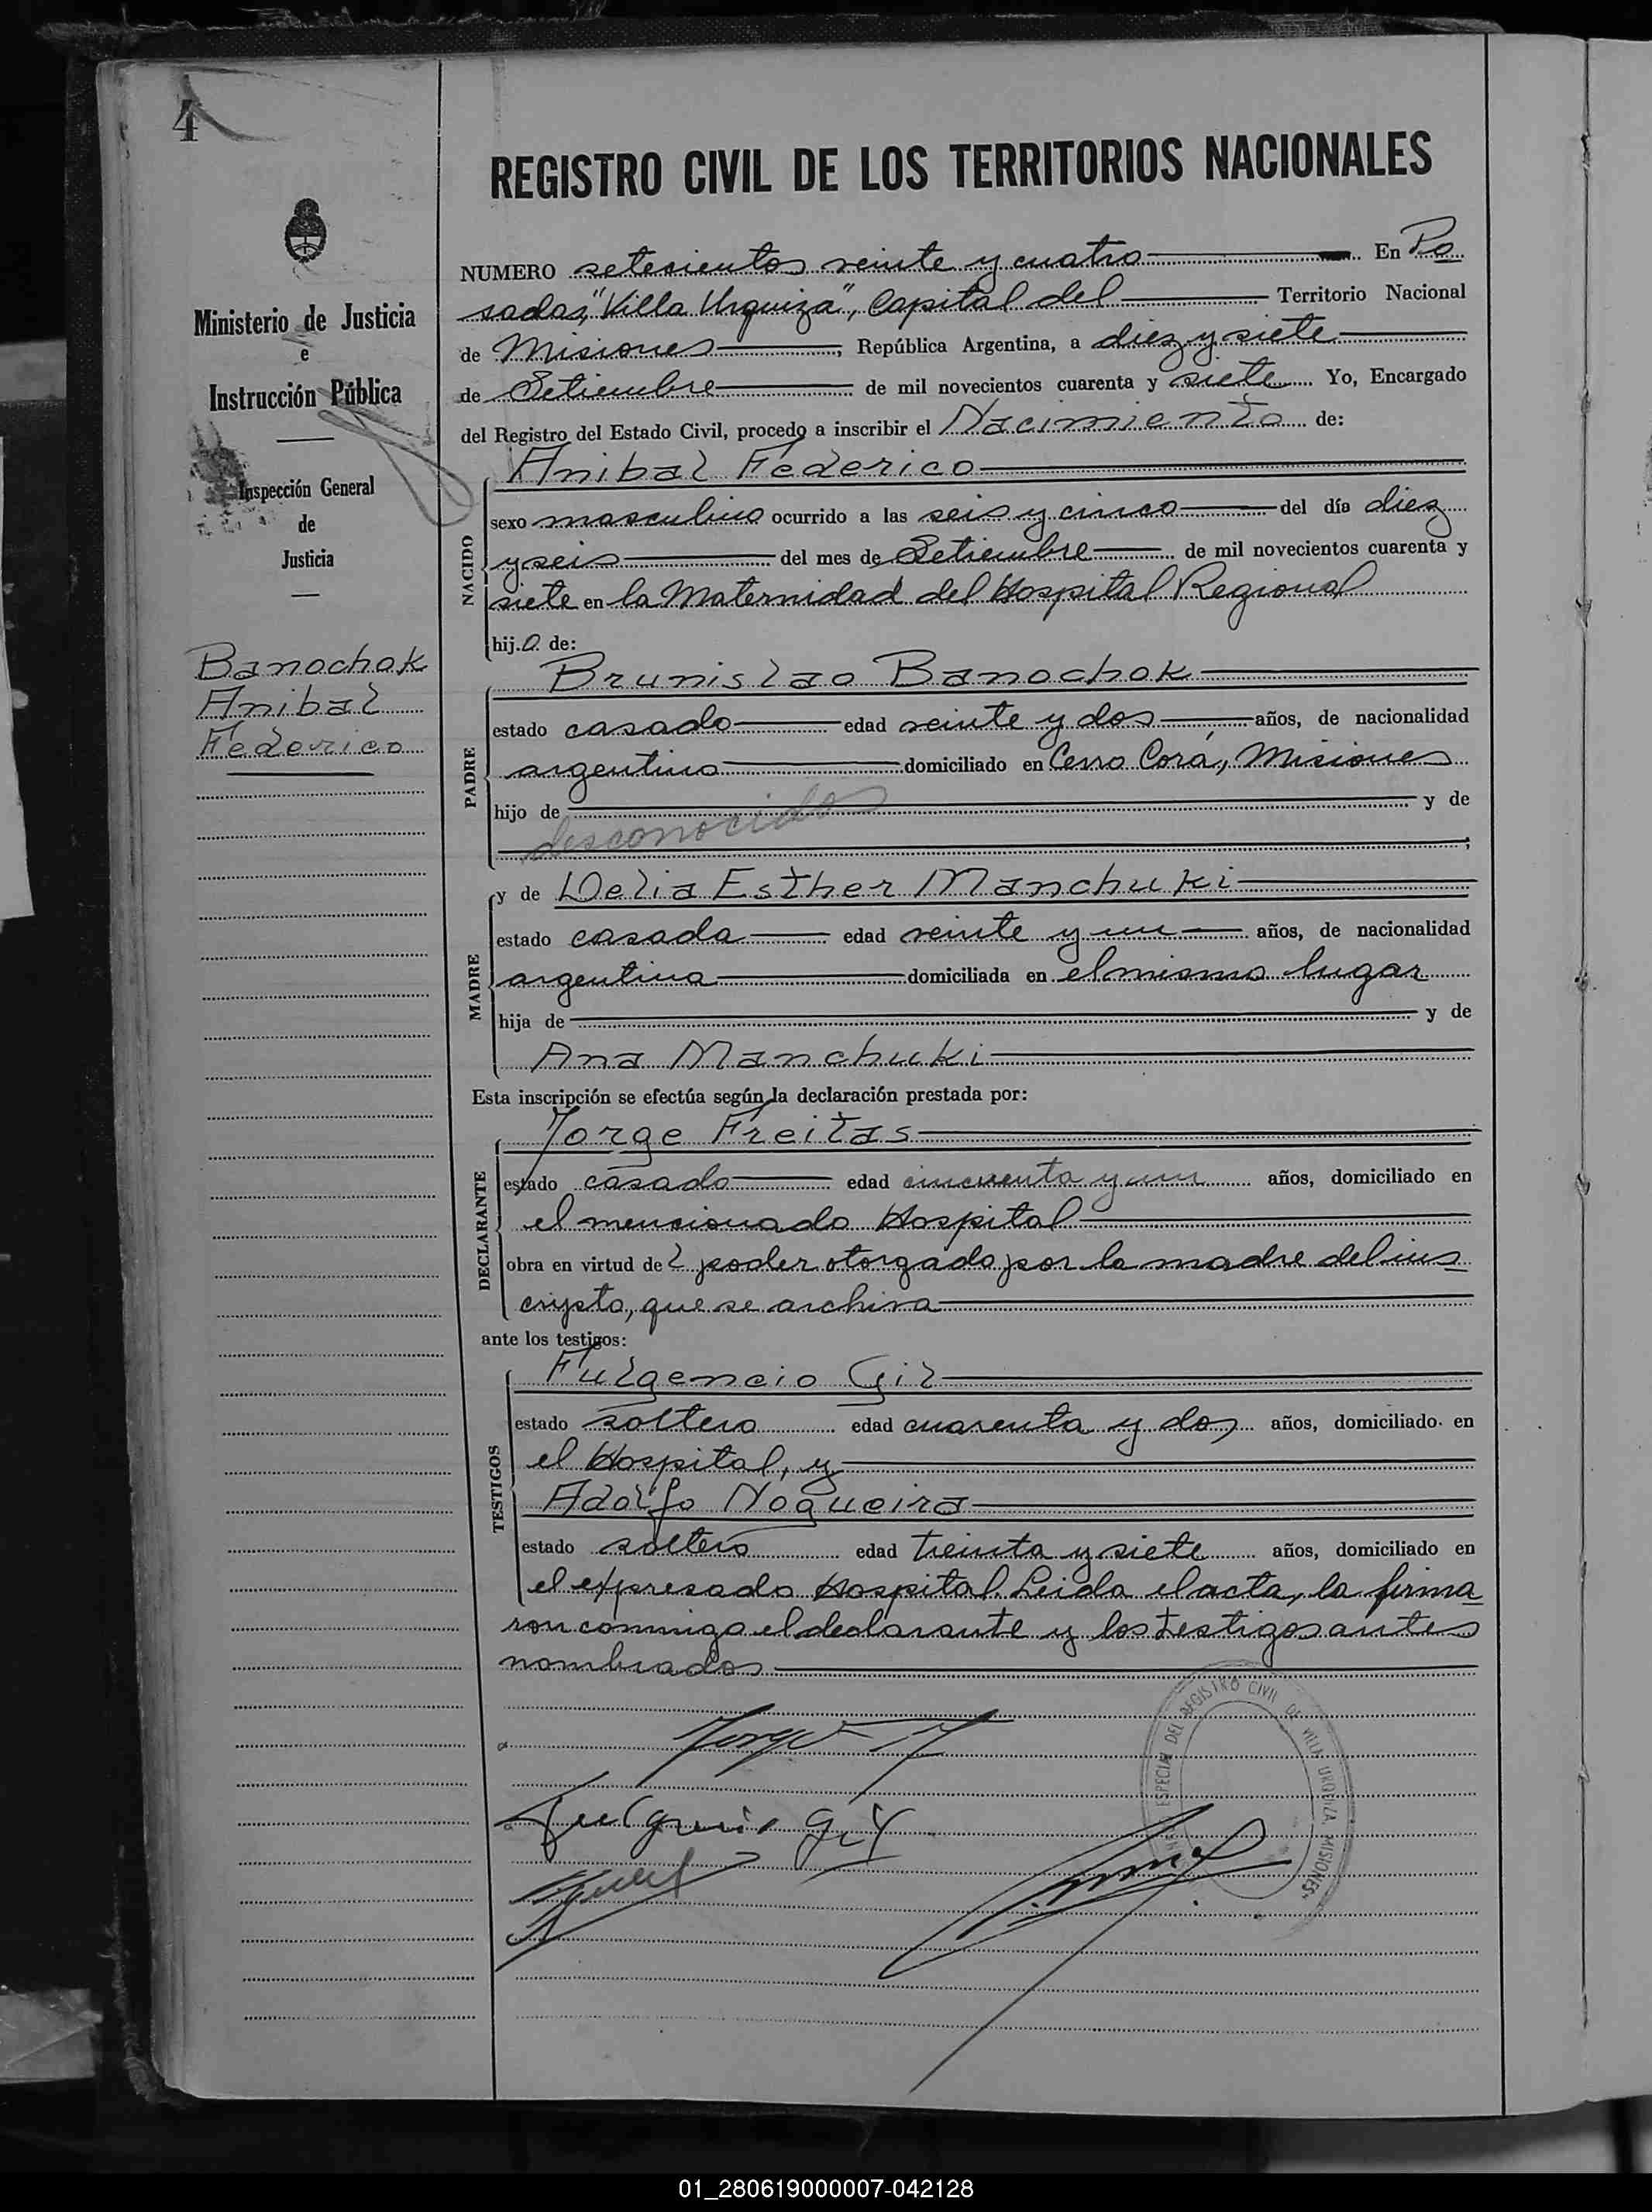 4
REGISTRO CIVIL DE LOS TERRITORIOS NACIONALES
Ministerio de Justicia
e
Instrucción Pública
Inspección General
de
Justicia
Banochok
Anibal
Federico
NUMERO setecientos veinte y cuatro En Po
sadas, "Villa Urquiza", Capital del Territorio Nacional
de Misiones, República Argentina, a diez y siete
de Setiembre de mil novecientos cuarenta y siete Yo, Encargado
del Registro del Estado Civil, procedo a inscribir el Nacimiento de:
NACIDO
Anibal Federico
sexo masculino ocurrido a las seis y cinco del día diez
y seis del mes de Setiembre de mil novecientos cuarenta y
siete en la Maternidad del Hospital Regional
hijo de:
PADRE
Brunislao Banochok
estado casado edad veinte y dos años, de nacionalidad
argentino domiciliado en Cerro Corá, Misiones
hijo de y de
desconocido
MADRE
y de Delia Esther Manchuki
estado casada edad veinte y un años, de nacionalidad
argentina domiciliada en el mismo lugar
hija de y de
Ana Manchuki
Esta inscripción se efectúa según la declaración prestada por:
DECLARANTE
Jorge Freitas
estado casado edad cincuenta y un años, domiciliado en
el mencionado Hospital
obra en virtud del poder otorgado por la madre del ins
cripto, que se archiva
ante los testigos:
TESTIGOS
Fulgencio Gil
estado soltero edad cuarenta y dos años, domiciliado en
el Hospital, y
Adolfo Nogueira
estado soltero edad treinta y siete años, domiciliado en
el expresado Hospital. Leida el acta, la firma
ron conmigo el declarante y los testigos antes
nombrados
ESPECIAL DEL REGISTRO CIVIL DE VILLA URQUIZA, MISIONES
Fulgencio Gil
01_280619000007-042128